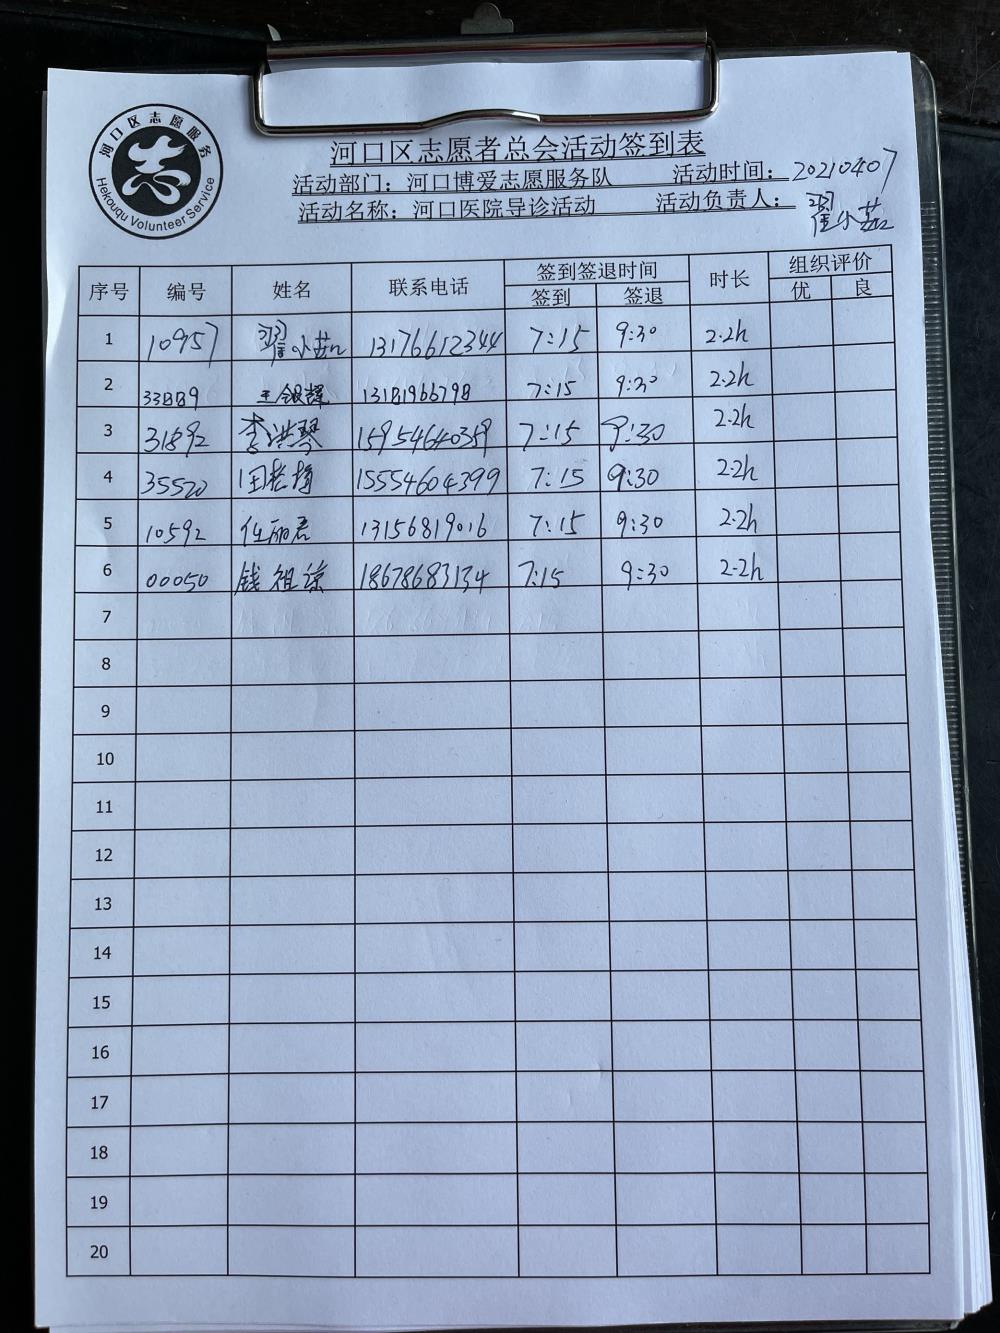 河口区志愿服务
Hekouqu Volunteer Service
河口区志愿者总会活动签到表
活动部门：河口博爱志愿服务队 活动时间：20210407
活动名称：河口医院导诊活动 活动负责人：翟小茹
序号 编号 姓名 联系电话 签到签退时间 时长 组织评价
签到 签退 优 良
1 10957 翟小茹 13176612344 7:15 9:30 2.2h
2 33889 王银辉 13181966798 7:15 9:30 2.2h
3 31892 李洪琴 15954640359 7:15 9:30 2.2h
4 35520 15554604399 7:15 9:30 2.2h
5 10592 任丽君 13156819016 7:15 9:30 2.2h
6 00050 钱祖谅 18678683134 7:15 9:30 2.2h
7
8
9
10
11
12
13
14
15
16
17
18
19
20